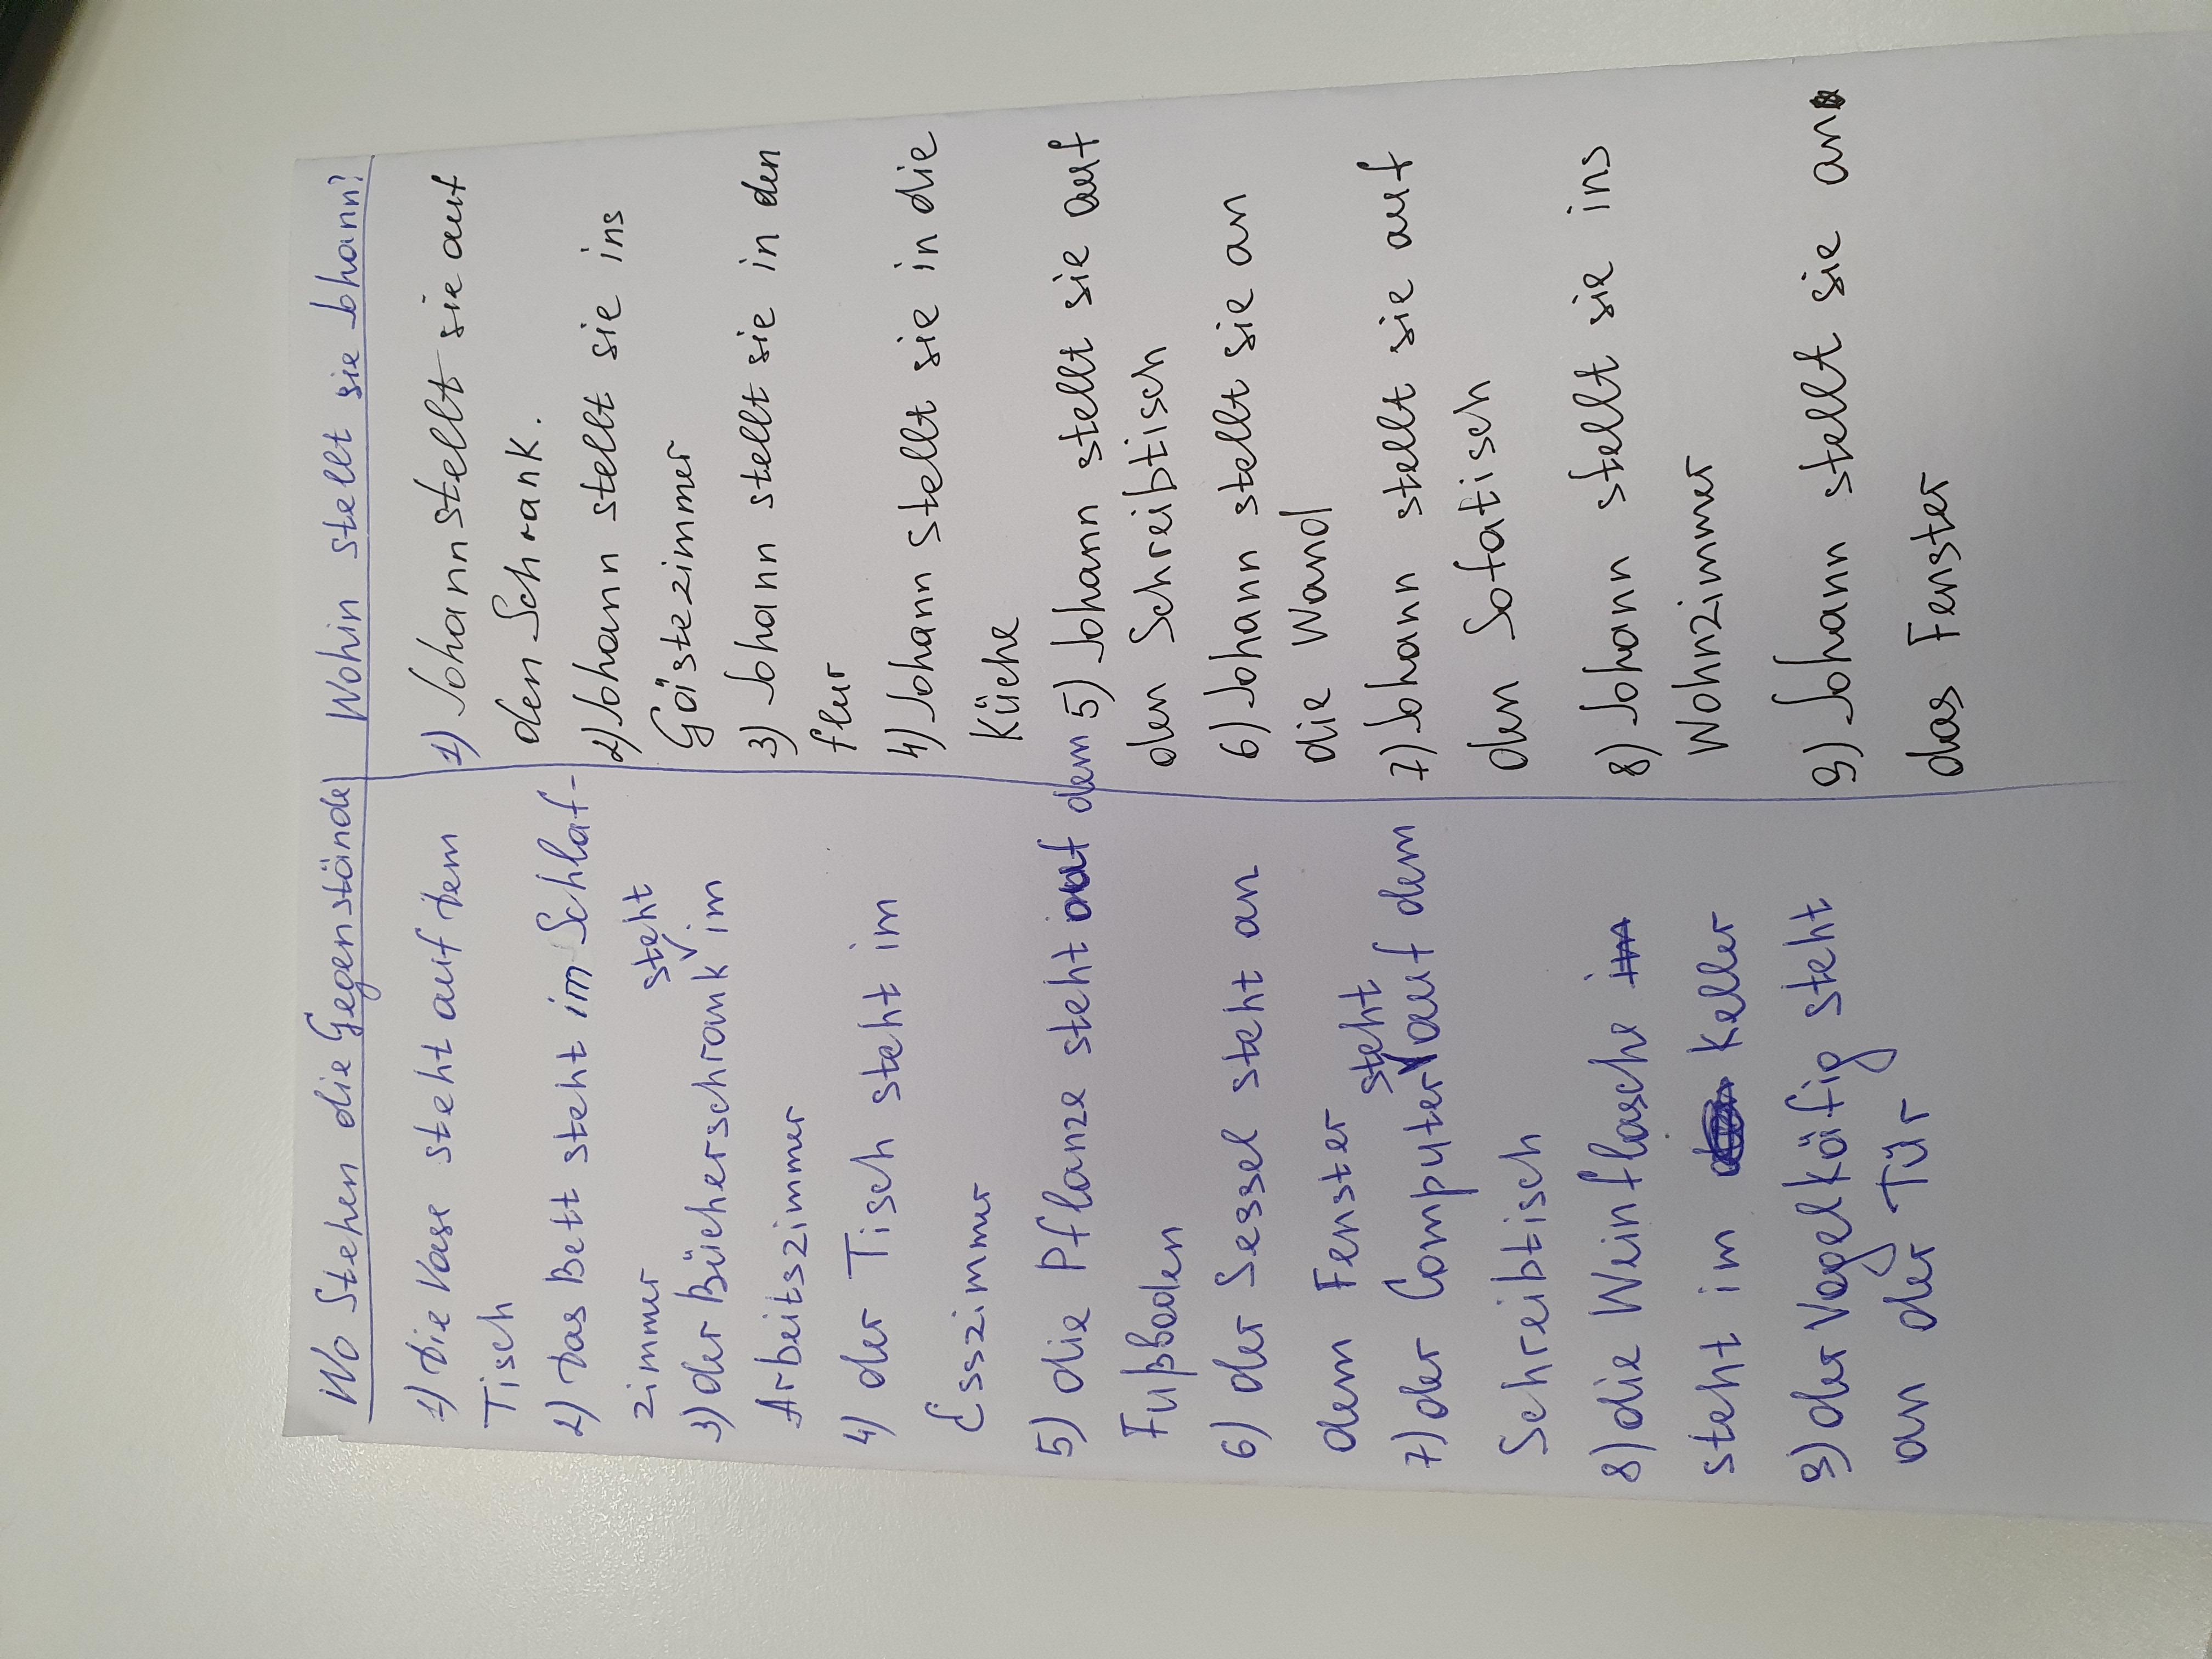 Wo stehen die Gegenstände
1) Die Vase steht auf dem
Tisch
2) Das Bett steht im Schlaf-
zimmer
steht
3) der Bücherschrank im
Arbeitszimmer
4) der Tisch steht im
Esszimmer
5) die Pflanze steht auf dem
Fußboden
6) der Sessel steht an
dem Fenster
steht
7) der Computer auf dem
Schreibtisch
8) die Weinflasche im
steht im Keller
9) der Vogelkäfig steht
an der Tür
Wohin stellt sie Johann?
1) Johann stellt sie auf
den Schrank.
2) Johann stellt sie ins
Gästezimmer
3) Johann stellt sie in den
flur
4) Johann stellt sie in die
Küche
5) Johann stellt sie auf
den Schreibtisch
6) Johann stellt sie an
die Wand
7) Johann stellt sie auf
den Sofatisch
8) Johann stellt sie ins
Wohnzimmer
9) Johann stellt sie an
das Fenster